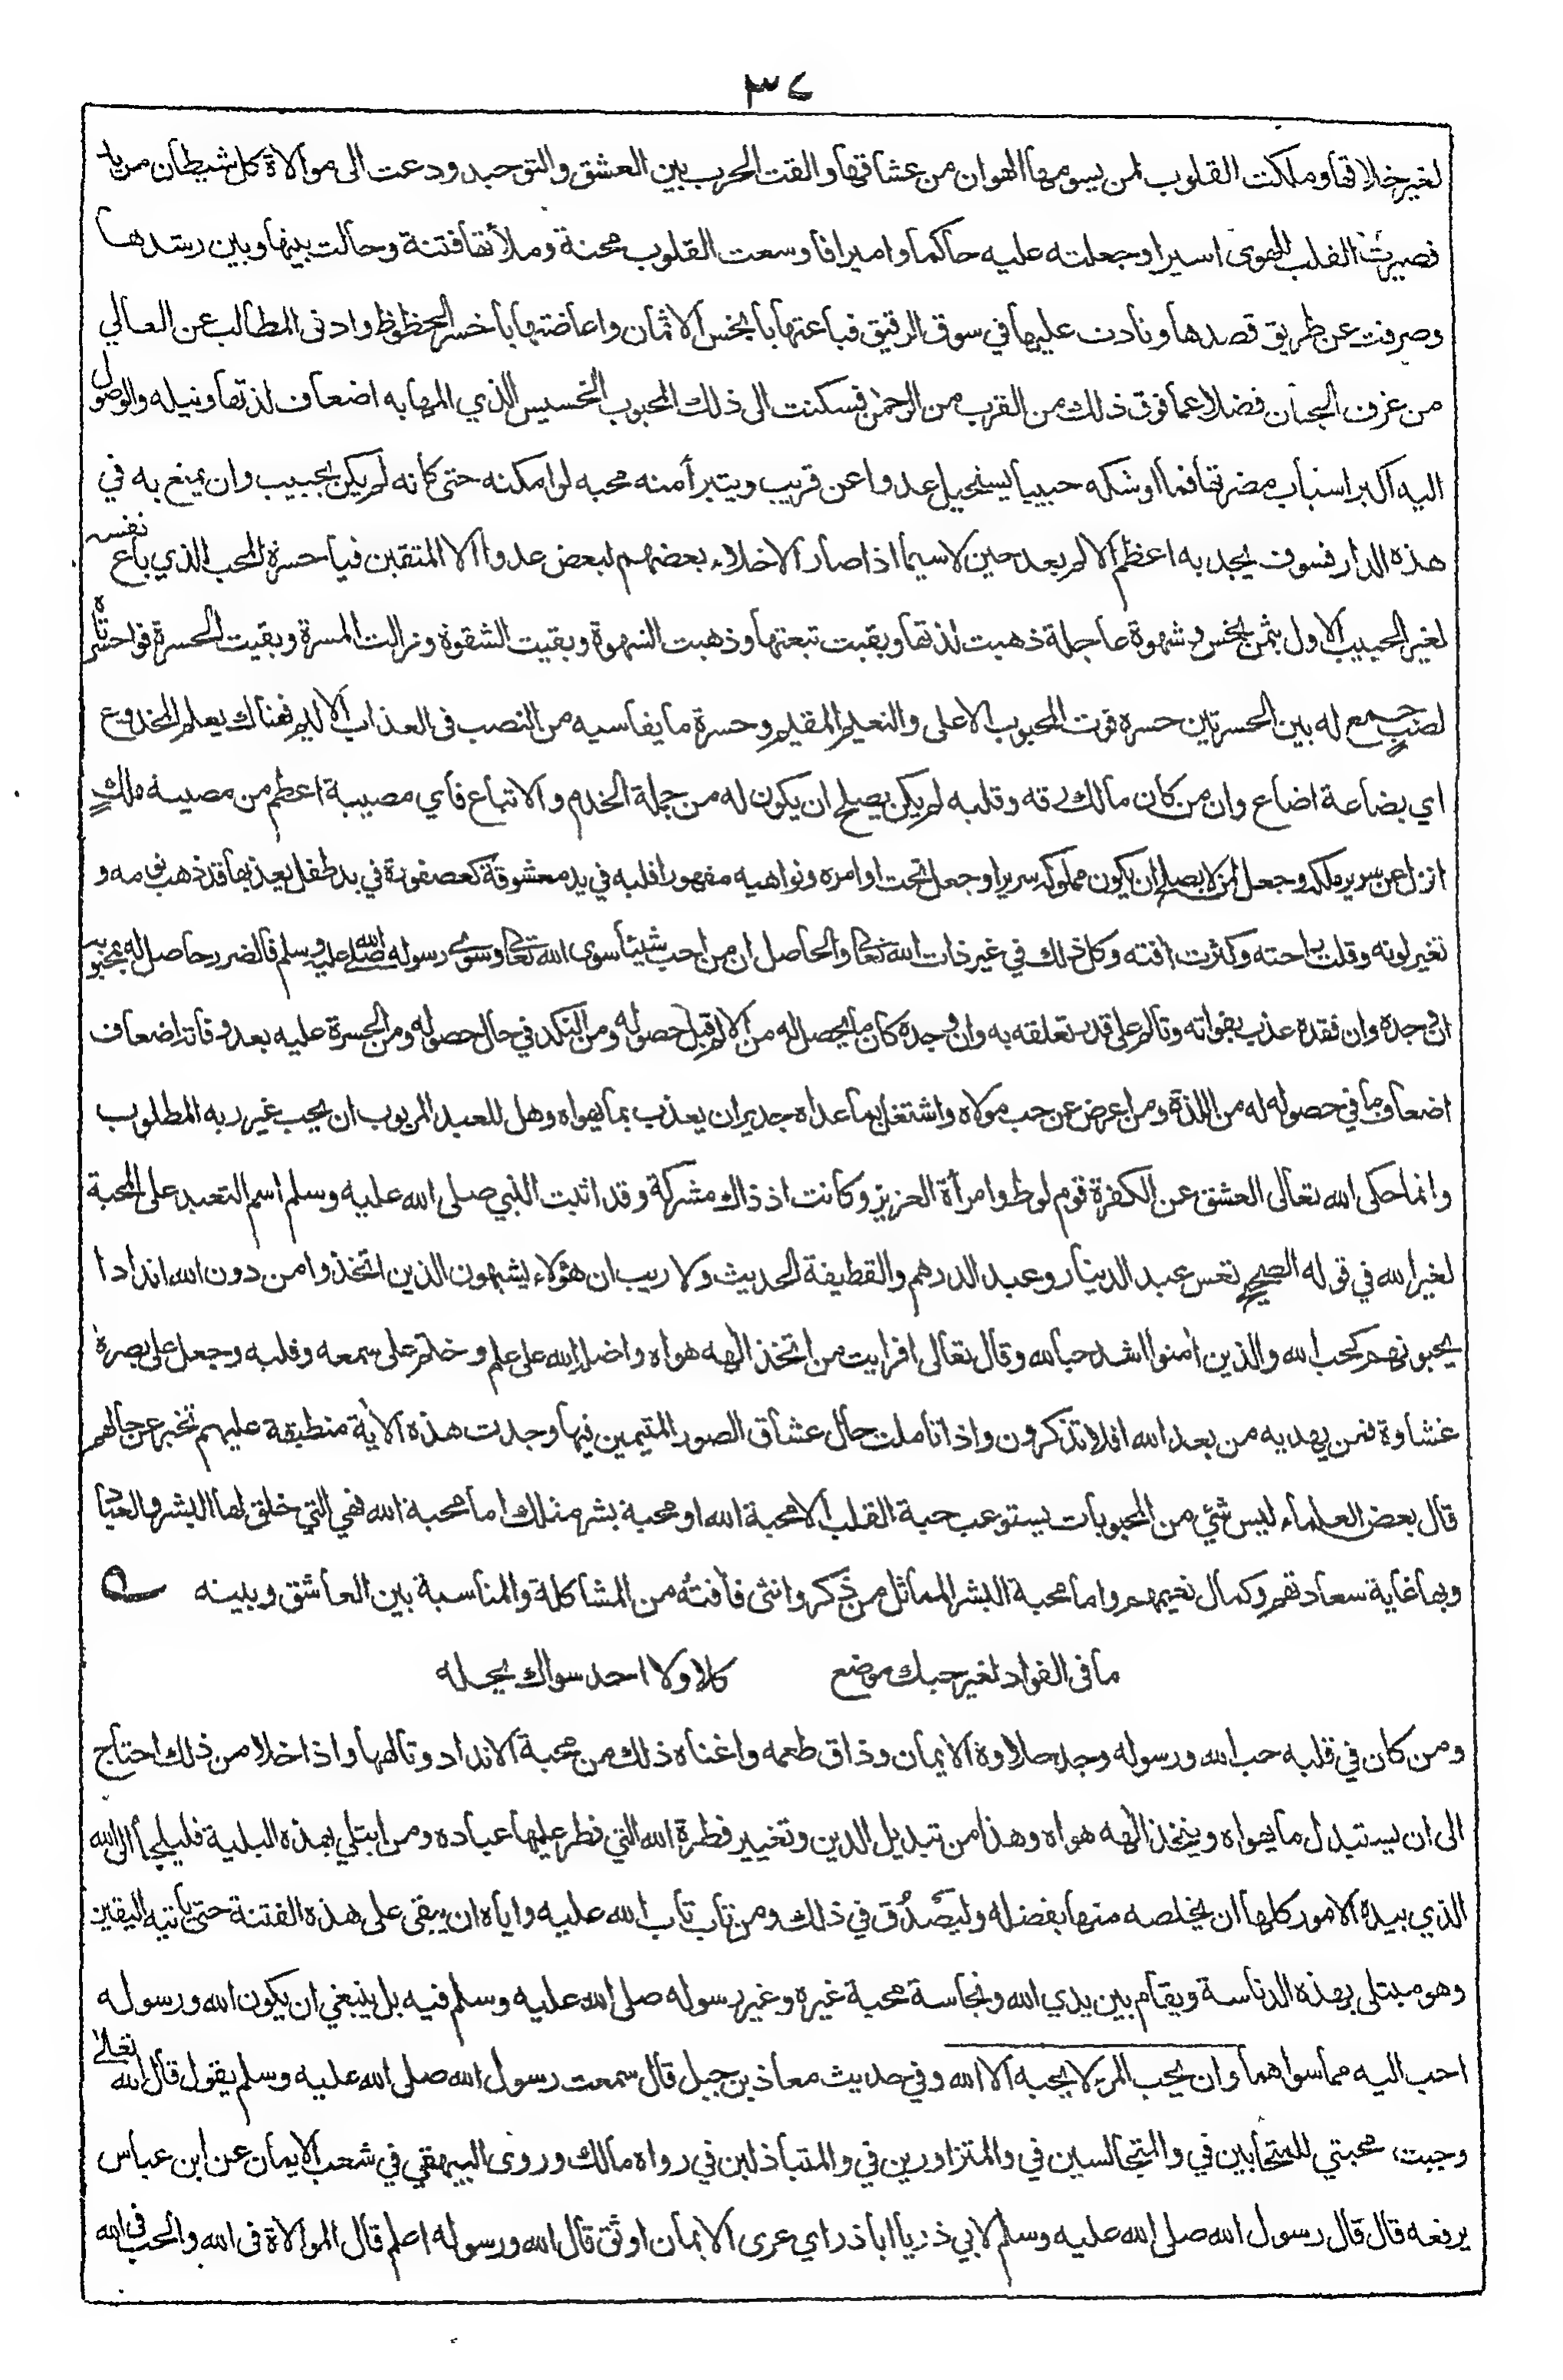 ٣٤
لغير خلاقها وملكت القلوب لمن يسومها الهوان من عشاقها والقت الحرب بين العشق والتوحيد ودعت الى موالاة كل شيطان مريد
فصيرت القلب للهوى اسيرا وجعلته عليه حاكما واميرا فاوسعت القلوب محنة وملأتها فتنة وحالت بينها وبين رشدها
وصرفت عن طريق قصدها ونادت عليها في سوق الرقيق فباعتها بابخس الاثمان واعاضتها باخس الحظوظ وادنى المطالب عن العالي
من غرف الجنان فضلا عما فوق ذلك من القرب من الرحمن فسكنت الى ذلك المحبوب الخسيس الذي المها به اضعاف لذتها ونيله والوصول
اليه اكبر اسباب مضرتها فما اوشكه حبيبا يستحيل عدوا عن قريب ويتبرأ منه محبه لو امكنه حتى كانه لم يكن بحبيب وان تمتع به في
هذه الدار فسوف يجد به اعظم الالم بعد حين لاسيما اذا صار الاخلاء بعضهم لبعض عدوا الا المتقين فيا حسرة المحب الذي باع نفسه
لغير الحبيب الاول بثمن بخس وشهوة عاجلة ذهبت لذتها وبقيت تبعتها وذهبت الشهوة وبقيت الشقوة وزالت المسرة وبقيت الحسرة فواحسرتاه
لصب جمع له بين الحسرتين حسرة فوت المحبوب الاعلى والنعيم المقيم وحسرة ما يقاسيه من النصب في العذاب الاليم فهناك يعلم المخدوع
اي بضاعة اضاع وان من كان مالك رقه وقلبه لم يكن يصلح ان يكون له من جملة الخدم والاتباع فاي مصيبة اعظم من مصيبة ملك
انزل عن سرير ملكه وجعل لمن لا يصلح ان يكون مملوكه سريرا وجعل تحت اوامره ونواهيه مقهورا قلبه في يد معشوقة كعصفورة في يد طفل يعذبها قد ذهب نومه و
تغير لونه وقلت راحته وكثرت افته وكل ذلك في غير ذات الله تعالى والحاصل ان من احب شيئا سوى الله تعالى وسوى رسوله صلى الله عليه وسلم فالضرر حاصل له بمحبوبه
ان وجده وان فقده عذب بفواته وتالم على قدر تعلقه به وان وجده كان ما يحصل له من الالم قبل حصوله ومن النكد في حال حصوله ومن الحسرة عليه بعد فواته اضعاف
اضعاف ما في حصوله له من اللذة ومن اعرض عن حب مولاه واشتغل بما عداه جدير ان يعذب بما يهواه وهل للعبد المربوب ان يحب غير ربه المطلوب
وانما حكى الله تعالى العشق عن الكفرة قوم لوط وامرأة العزيز وكانت اذ ذاك مشركة وقد اثبت النبي صلى الله عليه وسلم اسم التعبد على المحبة
لغير الله في قوله الصحيح تعس عبد الدينار وعبد الدرهم والقطيفة الحديث ولا ريب ان هؤلاء يشبهون الذين اتخذوا من دون الله اندادا
يحبونهم كحب الله والذين امنوا اشد حبا لله وقال تعالى افرايت من اتخذ الهه هواه واضله الله على علم وختم على سمعه وقلبه وجعل على بصره
غشاوة فمن يهديه من بعد الله افلا تذكرون واذا تاملت حال عشاق الصور المتيمين فيها وجدت هذه الآية منطبقة عليهم تخبر عن حالهم
قال بعض العلماء ليس شئي من المحبوبات يستوعب حبة القلب الا محبة الله او محبة بشر مثلك اما محبة الله فهي التي خلق لها البشر والعباد
وبها غاية سعادتهم وكمال نعيمهم واما محبة البشر المماثل من ذكر وانثى فافته من المشاكلة والمناسبة بين العاشق وبينه
ما في الفواد لغير حبك موضع كلا ولا احد سواك يحله
ومن كان في قلبه حب الله ورسوله وجد حلاوة الايمان وذاق طعمه واغناه ذلك من محبة الانداد وتالهها واذا خلا من ذلك احتاج
الى ان يستبدل ما يهواه ويتخذ الهه هواه وهذا من تبديل الدين وتغيير فطرة الله التي فطر عليها عباده ومن ابتلي بهذه البلية فليلجأ الى الله
الذي بيده الامور كلها ان يخلصه منها بفضله وليصدق في ذلك ومن تاب تاب الله عليه واياه ان يبقى على هذه الفتنة حتى ياتيه اليقين
وهو مبتلى بهذه الدناسة ويقام بين يدي الله ونجاسة محبة غيره وغير رسوله صلى الله عليه وسلم فيه بل ينبغي ان يكون الله ورسوله
احب اليه مما سواهما وان يحب المرء لا يحبه الا الله وفي حديث معاذ بن جبل قال سمعت رسول الله صلى الله عليه وسلم يقول قال الله تعالى
وجبت محبتي للمتحابين في والمتجالسين في والمتزاورين في والمتباذلين في رواه مالك وروى البيهقي في شعب الايمان عن ابن عباس
يرفعه قال قال رسول الله صلى الله عليه وسلم لابي ذر يا اباذر اي عرى الايمان اوثق قال الله ورسوله اعلم قال الموالاة في الله والحب في الله